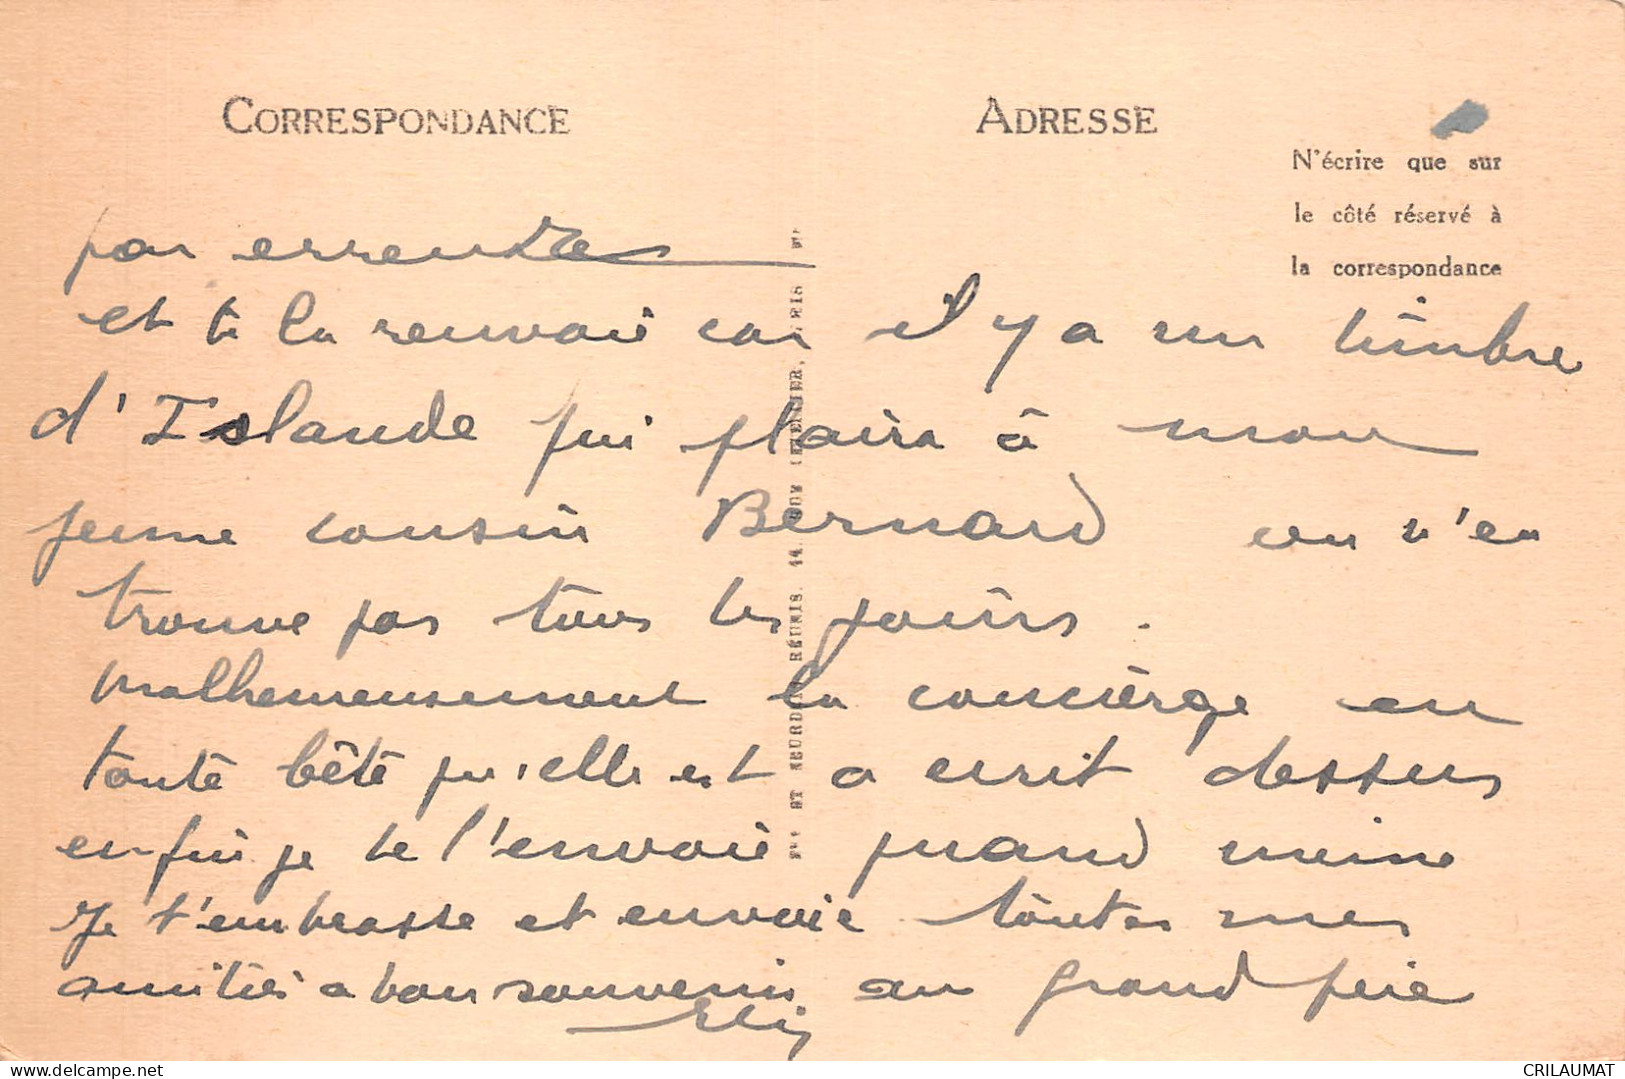 CORRESPONDANCE
ADRESSE
N'écrire que sur
le côté réservé à
la correspondance
par
et te la renvoie car il y a un timbre
d'Islande qui plaira à mon
jeune cousin Bernard on n'en
trouve pas tous les jours.
malheureusement la concierge en
toute bête qu'elle est a écrit dessus
enfin je te l'envoie quand même
Je t'embrasse et envoie toutes mes
amitiés a bon souvenir au grand père
RÉUNIS. 44.
www.delcampe.net
CRILAUMAT